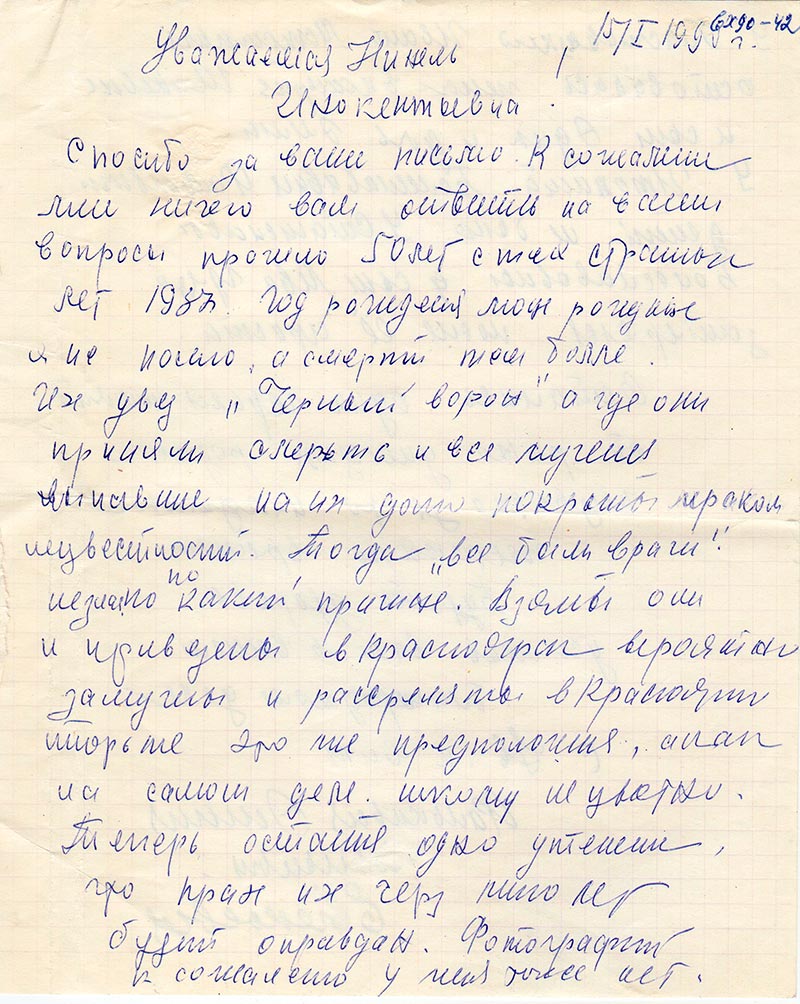 вх90-42
15/I 1990 г.
Уважаемая Нинель
Инокентьевна.
Спосибо за ваше письмо. К сожалени
мы ничего вам ответить на ваши
вопросы прошло 50 лет с тех страшных
лет 1937. год рождения моих родных
я не помню, а смерти тем более.
Их увез „Черный ворон" а где они
приняли смерьть и все мучения
выпавшие на их долю покрыты мраком
неизвестности Тогда „все были враги".
незнаю по какой причине. Взяты они
и привезены в Красноярск вероятно
замучены и расстреляты в Красноярск
тюрьме это мие предположения, а как
на самом деле никому не уветно.
Теперь остается одно утешени,
что прах их через много лет
будет оправдан. Фотографий
к сожалению у меня тоже нет.